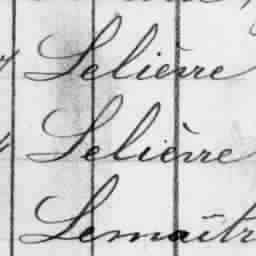 Lelièvre
Lelièvre
Lemaîtr